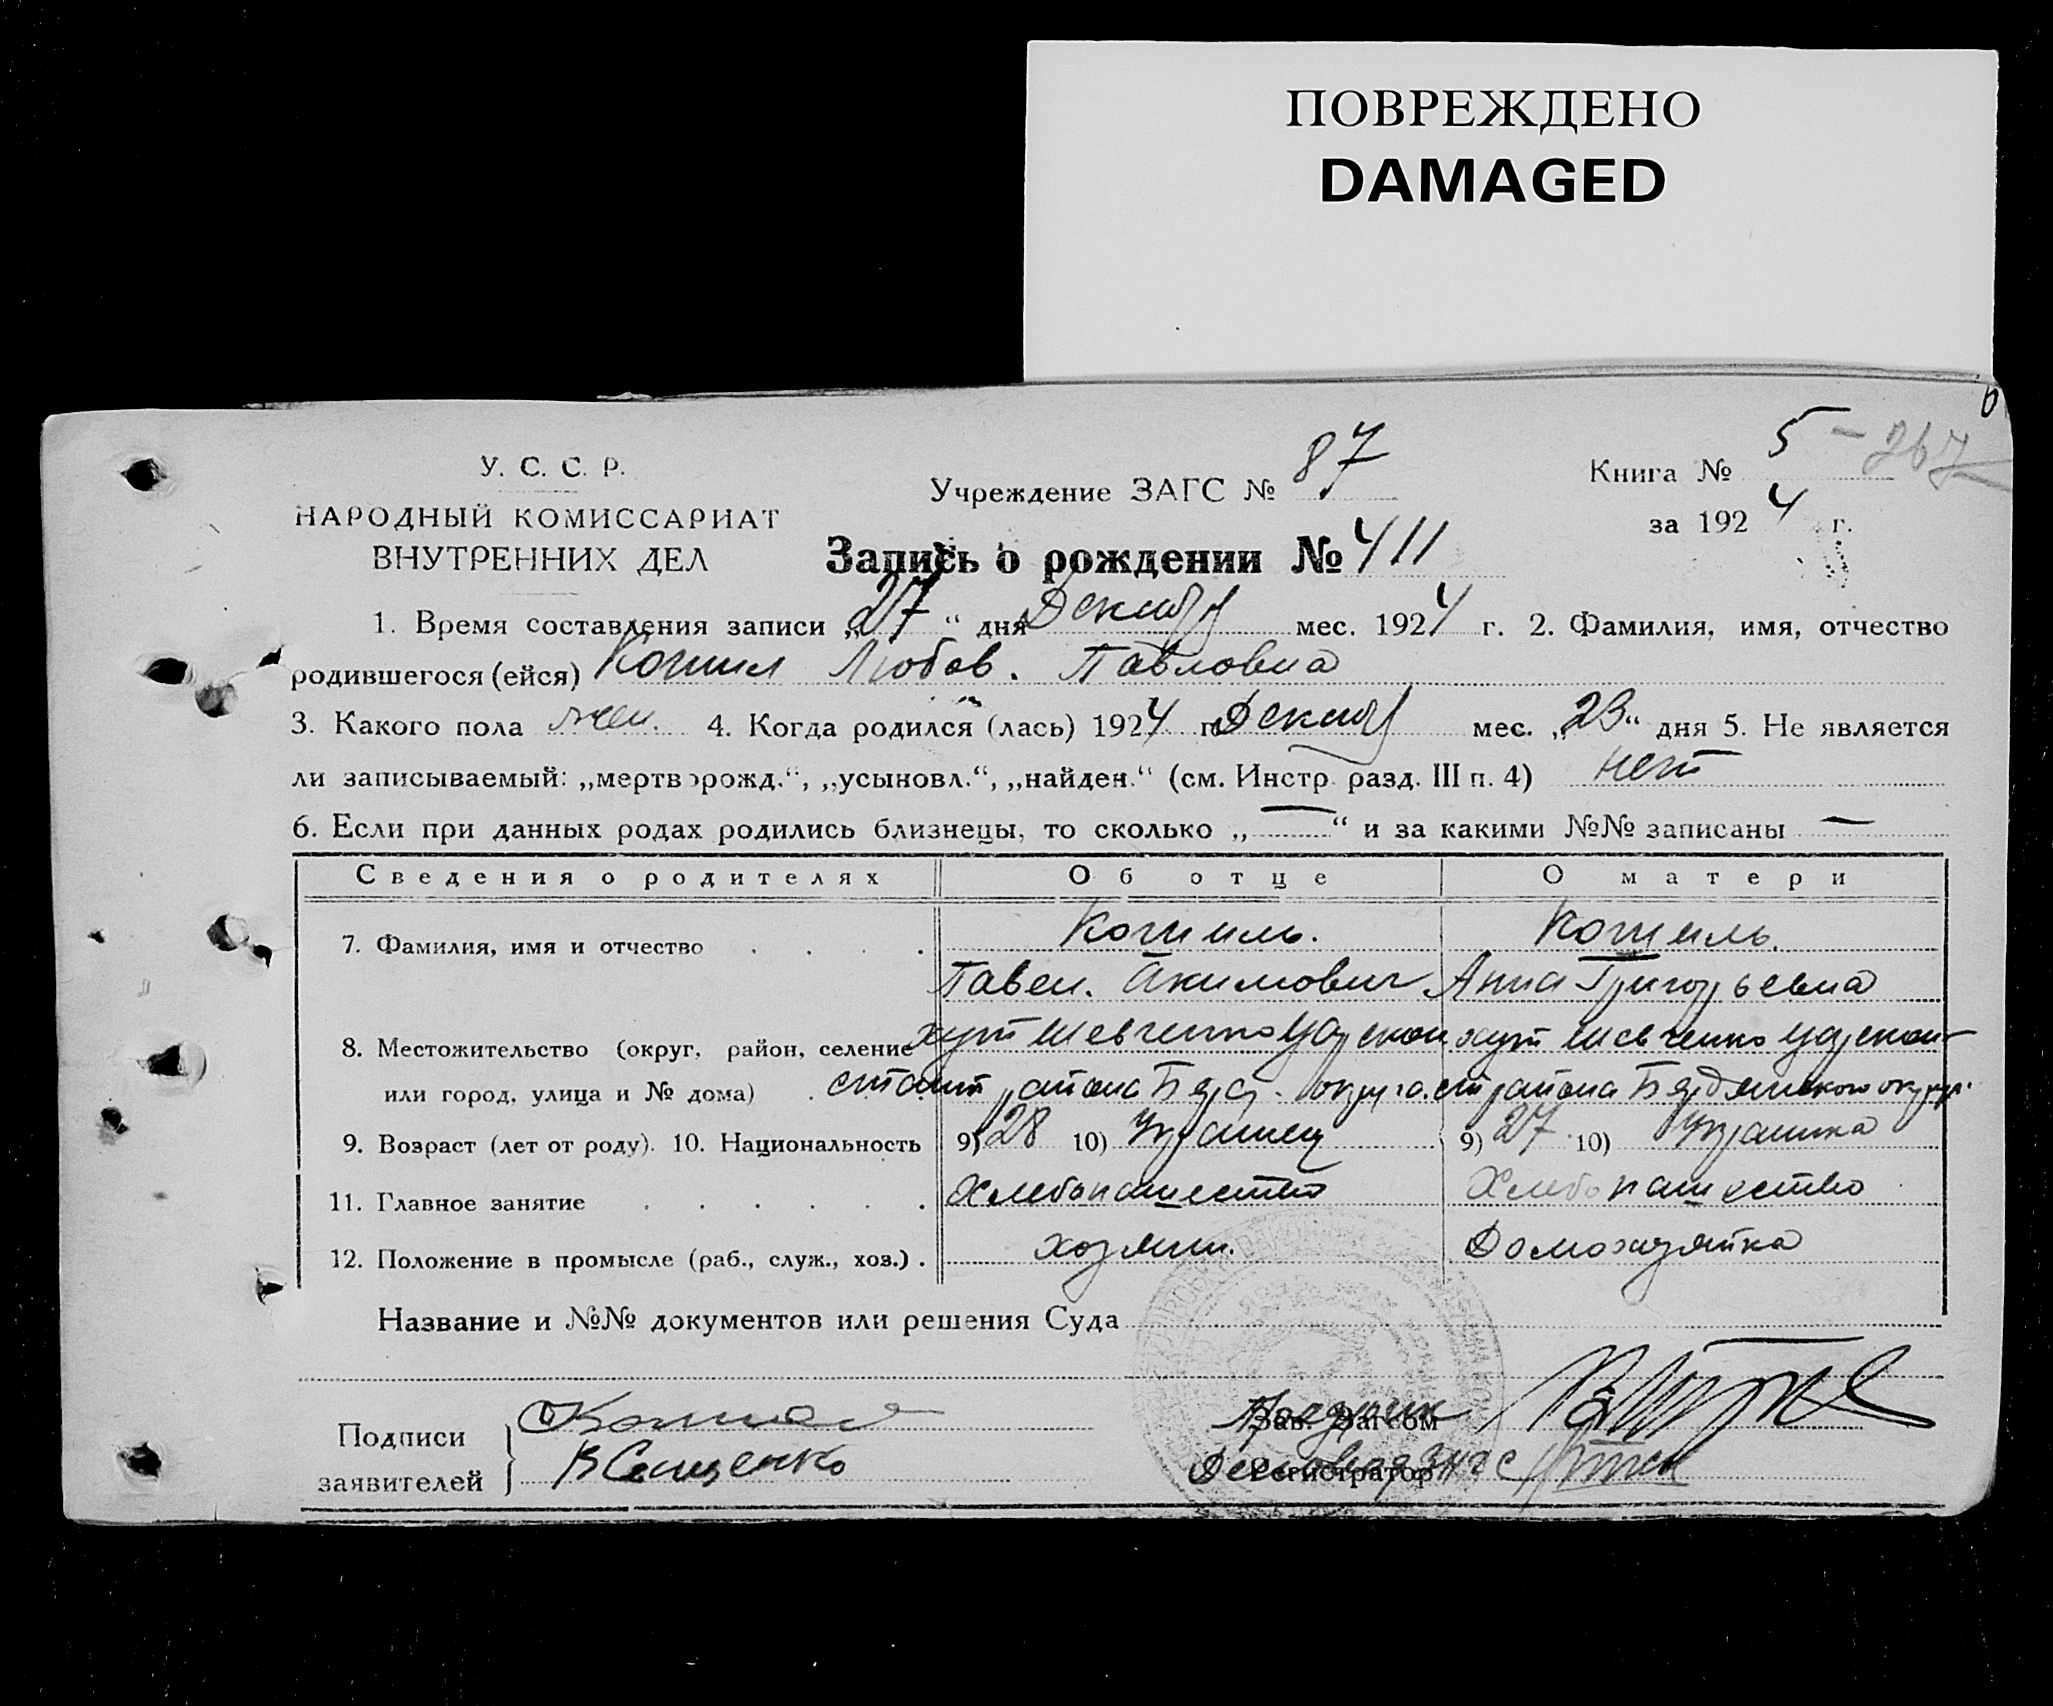 ПОВРЕЖДЕНО
DAMAGED
У. С. С. Р.
НАРОДНЫЙ КОМИССАРИАТ
ВНУТРЕННИХ ДЕЛ
Учреждение ЗАГС № 87
Книга № 5 - 267
за 1924 г.
Запись о рождении № 411
1. Время составления записи „27“ дня Декабр мес. 1924 г. 2. Фамилия, имя, отчество
родившегося (ейся) Любов. Павловна
3. Какого пола жен. 4. Когда родился (лась) 1924 г. Декабр мес. „23“ дня 5. Не является
ли записываемый: „мертворожд.“, „усыновл.“, „найден.“ (см. Инстр. разд. III п. 4) нет
6. Если при данных родах родились близнецы, то сколько „—“ и за какими №№ записаны —
Сведения о родителях Об отце О матери
7. Фамилия, имя и отчество
Павел. Акимович Анна Григорьевна
8. Местожительство (округ, район, селение хут Шевченко Царекон хут Шевченко Царекон-
или город, улица и № дома) стант района Бярд. округа. ст района Бярдянского округ.
9. Возраст (лет от роду). 10. Национальность 9) 28 10) Украинец 9) 27 10) Украинка
11. Главное занятие Хлебопашество Хлебопашество
12. Положение в промысле (раб., служ., хоз.) хозяин. Домохозяйка
Название и №№ документов или решения Суда
Подписи
заявителей
Зав. Загсом
Регистратор